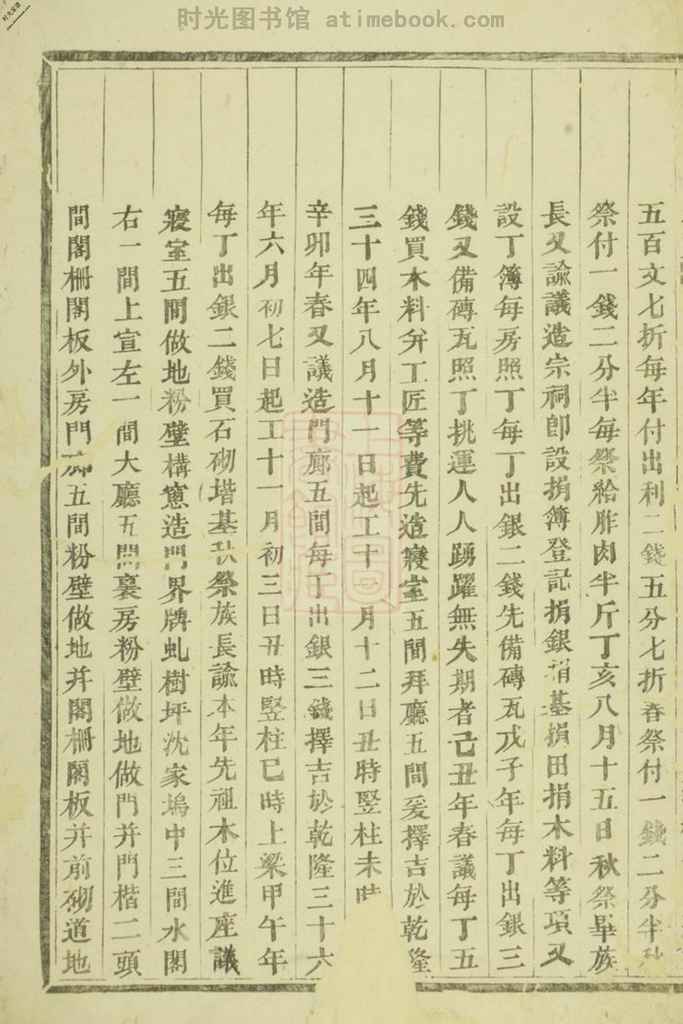 时光图书馆 atimebook.com
五百文七折每年付出利二錢五分七折春祭付一錢二分半秋
祭付一錢二分半每祭給胙肉半斤丁亥八月十五日秋祭畢族
長又諭議造宗祠即設捐簿登記捐銀捐基捐田捐木料等項又
設丁簿每房照丁每丁出銀二錢先備磚瓦戊子年每丁出銀三
錢又備磚瓦照丁挑運人人踴躍無失期者己丑年春議每丁五
錢買木料并工匠等費先造寢室五間拜廳五間爰擇吉於乾隆
三十四年八月十一日起工十 月十二日丑時竪柱未時
辛卯年春又議造門廊五間每丁出銀三錢擇吉於乾隆三十六
年六月初七日起工十一月初三日丑時竪柱巳時上梁甲午年
每丁出銀二錢買石砌堦基秋祭族長諭本年先祖木位進座議
寢室五間做地粉壁構窻造門界牌虬樹坪沈家塢中三間水閣
右一間上宣左一間大廳五間裏房粉壁做地做門并門楷二頭
間閣柵閣板外房門廊五間粉壁做地并閣柵閣板并前砌道地